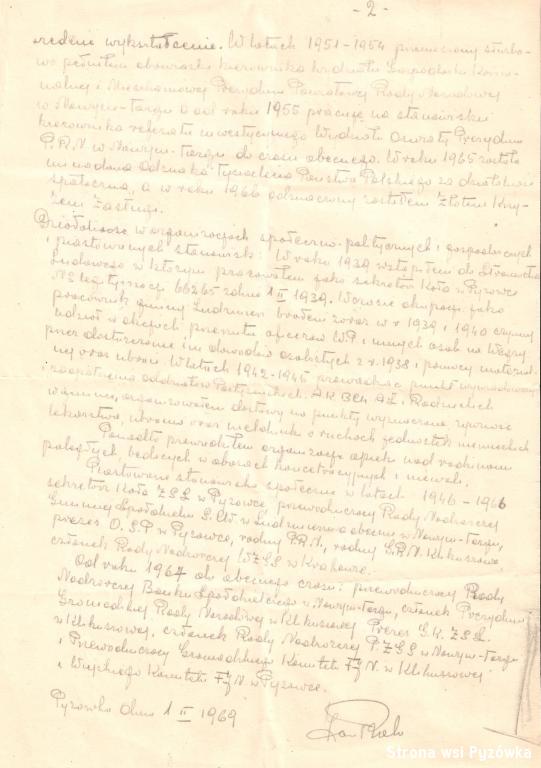 - 2 -
średnie wykształcenie. W latach 1951-1954 przeniesiony służbo-
wo pełniłem obowiązki kierownika wydziału Gospodarki Komu-
nalnej i Mieszkaniowej Prezydium Powiatowej Rady Narodowej
w Nowym-Targu a od roku 1955 pracuję na stanowisku
kierownika referatu inwestycyjnego Wydziału Oświaty Prezydium
P.R.N w Nowym-Targu do czasu obecnego. W roku 1965 została
mi nadana Odznaka Tysiąclecia Państwa Polskiego za działalność
społeczną, a w roku 1966 odznaczony zostałem Złotym Krzy-
żem Zasługi.
Działalność w organizacjach społeczno-politycznych i gospodarczych
i piastowanych stanowisk: W roku 1939 wstąpiłem do Stronnictwa
Ludowego w którym pracowałem jako sekretarz Koła w Pyzówce
Nr legitymacji 66265 z dnia 1 II 1939. W czasie okupacji jako
pracownik gminy Ludźmierz brałem zaraz w r 1939 i 1940 czynny
udział w akcjach przerzutu oficerów W.P i innych osób na Węgry
przez dostarczenie im dowodów osobistych z r. 1938 i pomocy material-
nej oraz ubrań. W latach 1942-1945 prowadząc punkt
zaopatrzenia oddziałów Partyzanckich A.K BCh, A.L i Radzieckich
organizowałem dostawy na punkty wyznaczone, żywność
lekarstwa, ubrania oraz meldunki o ruchach jednostek niemieckich
Ponadto prowadziłem organizację opieki nad rodzinami
poległych, będących w obozach koncetracyjnych i niewoli.
Piastowane stanowiska społeczne w latach 1946-1966
sekretarz Koła ZSL w Pyzówce, przewodniczący Rady Nadzorczej
Gminnej Spółdzielni S.Ch w Ludźmierzu a obecnie w Nowym-Targu,
prezes O.S.P w Pyzówce, radny P.R.N, radny G.R.N Klikuszowa,
członek Rady Nadzorczej WZGS w Krakowie.
Od roku 1967 do obecnego czasu: przewodniczący Rady
Nadzorczej Banku Spółdzielczego w Nowym-Targu, członek Prezydium
Gromadzkiej Rady Narodowej w Klikuszowej Prezes G.K. ZSL
w Klikuszowej, członek Rady Nadzorczej P.Z.G.S w Nowym-Targu
i Przewodniczący Gromadzkiego Komitetu FJN. w Klikuszowej
i Wiejskiego Komitetu FJN w Pyzówce.
Pyzówka dnia 1 II 1969
Strona wsi Pyzówka